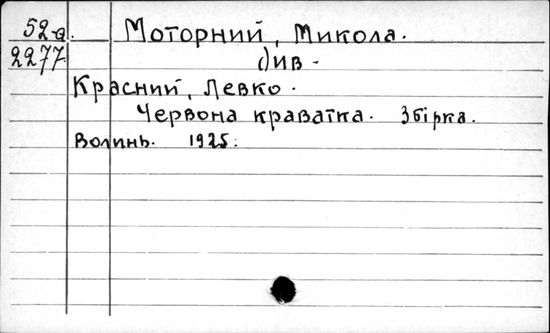 52-а. Моторний, Микола.
2277 див.
Красний, Левко.
Червона краватка. Збірка.
Волинь. 1925.